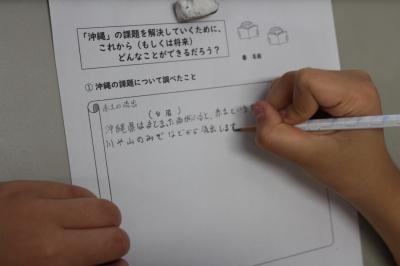 「沖縄」の課題を解決していくために、
これから（もしくは将来）
どんなことができるだろう？
番 名前
① 沖縄の課題について調べたこと
赤土の流出
沖縄県はまとまった雨がふると、赤土
川や山のみぞなどから流出します